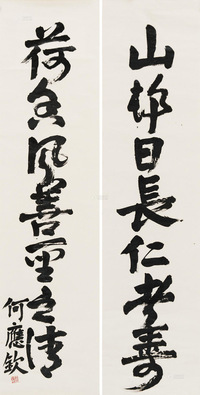 山静日長仁者壽
荷香風善聖之清
何應欽